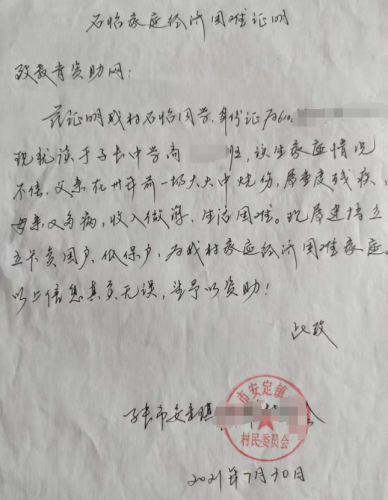 石怡家庭经济困难证明
致教育资助网：
兹证明我村石怡同学，身份证为610
现就读于子长中学高 班，该生家庭情况
不佳，父亲在卅年前一场大火中烧伤，属重度残疾，
母亲又多病，收入微薄，生活困难。现属建档立
立卡贫困户，低保户，为我村家庭经济困难家庭。
以上信息真实无误，望予以资助！
此致
子长市安定镇 会
市安定镇
村民委员会
2021年7月30日